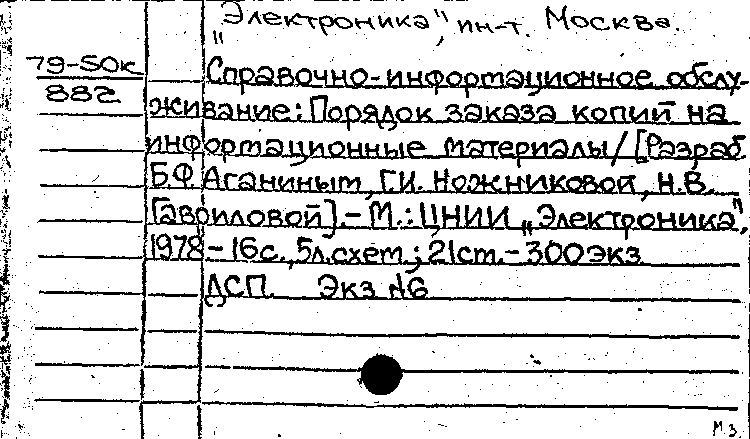 „Электроника", ин-т. Москва.
79-50к
882
Справочно-информационное обслу-
живание: Порядок заказа копий на
информационные материалы/[Разраб.
Б.Ф. Аганиным, Г.И. Ножниковой, Н.В.
Гавриловой].- М.: ЦНИИ „Электроника",
1978 - 16с., 5л.схем.; 21см. - 300экз
ДСП. Экз №6
М.З.